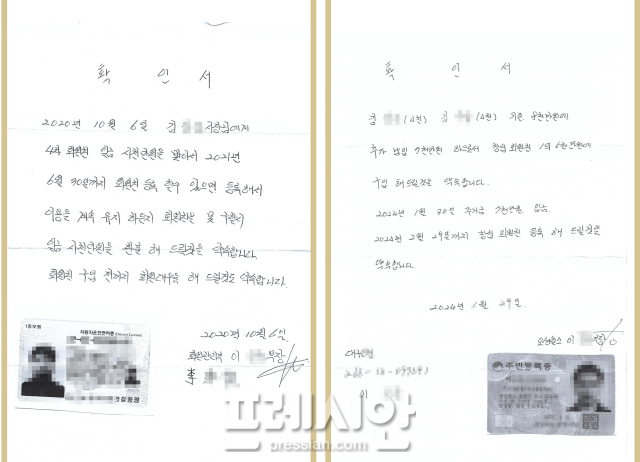 확 인 서
2020년 10월 6일 김 사장님에게
회원권 입금 사천만원을 받아서 2021년
6월 30일까지 회원권 등록 할수 있으면 등록해서
이용을 계속 유지 하든지 회원권을 못 구할시
입금 사천만원을 환불 해 드릴것을 약속합니다.
회원권 구입 전까지 회원대우를 해 드릴것도 약속합니다.
2020년 10월 6일
회원관리부 이 부장
李
자동차운전면허증
확 인 서
김 (4천) 김 (4천) 기존 8천만원에
추가 납입 7천만원 하므로서 창립 회원권 1억 5천만원에
구입 해 드릴것을 약속합니다.
2024년 1월 30일 추가금 7천만원 입금
2024년 2월 29일까지 창립 회원권 등록 해 드릴것을
약속합니다.
2024년 월 29일
이
대구은행
이
주민등록증
프레시안
pressian.com